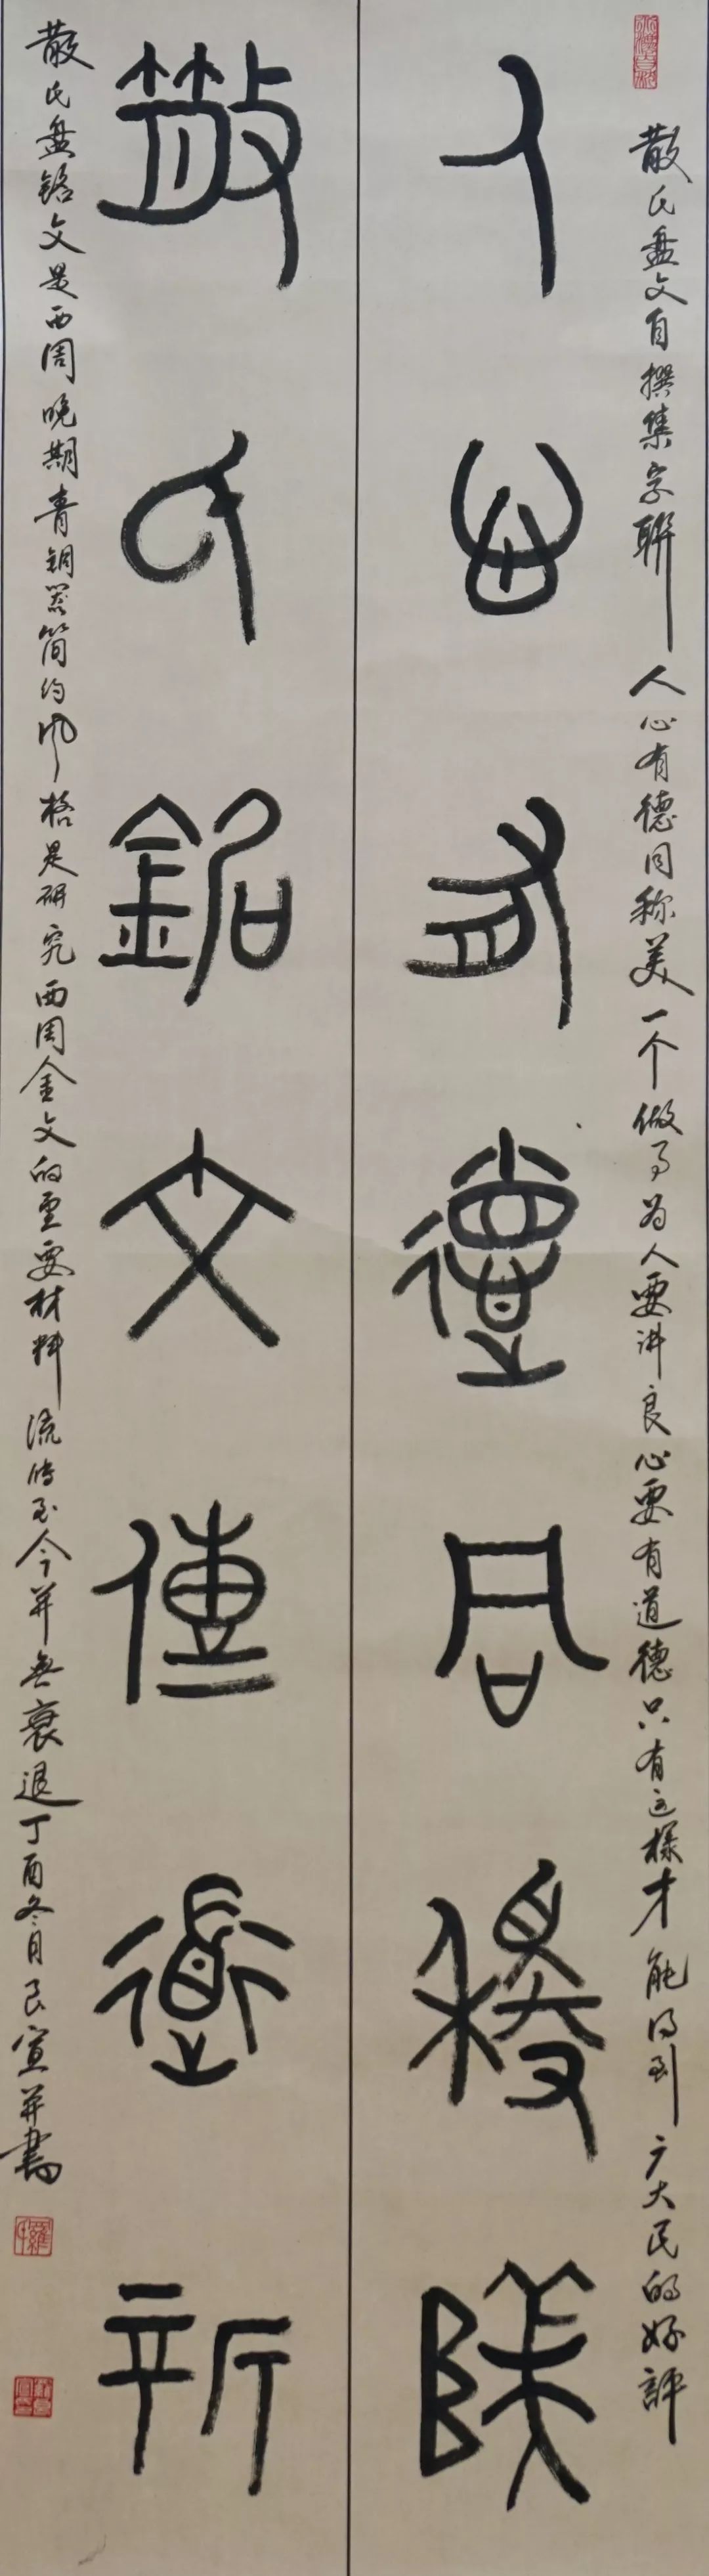 散氏盘文自撰集字聯 人心有德同称美 一个做事为人要讲良心要有道德只有这様才能得到广大民的好評
人心有德同稱美
散氏銘文傳道新
散氏盘铭文是西周晚期青铜器简约风格是研究西周金文的重要材料 流传至今并無衰退丁酉冬月良宣并書